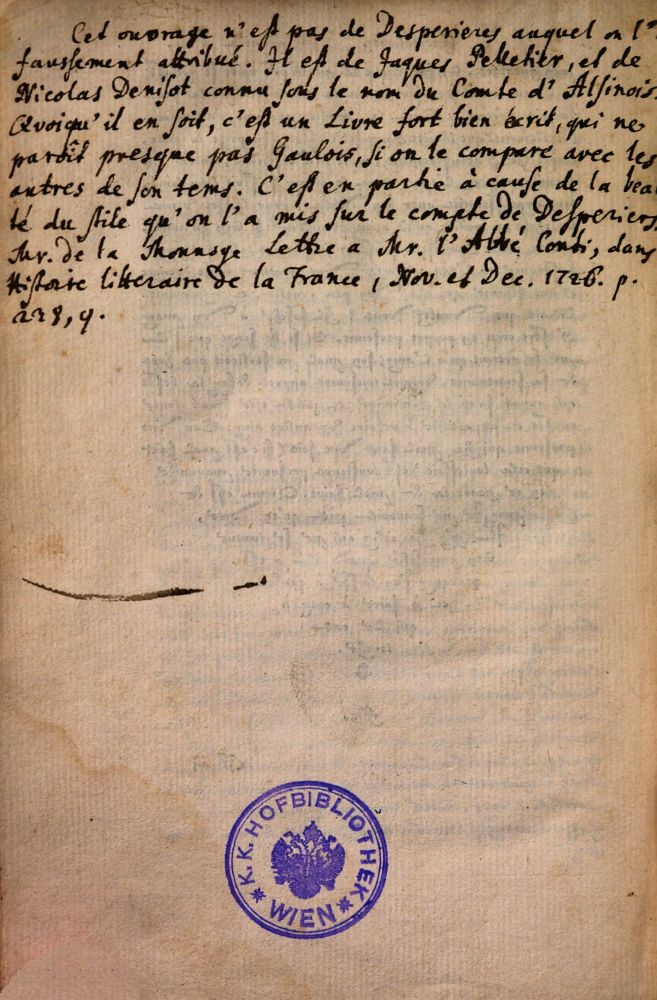 Cet ouvrage n'est pas de Desperieres auquel on l'a
faussement attribué. Il est de Jaques Pelletier, et de
Nicolas Denisot connu sous le nom du Comte d'Alsinois.
Qvoiqu'il en soit, c'est un Livre fort bien écrit, qui ne
paroît presque pas Gaulois, si on le compare avec les
autres de son tems. C'est en partie à cause de la beau
té du stile qu'on l'a mis sur le compte de Desperiers,
Mr. de la Monnoye Lettre a Mr. l'Abbé Conti, dans
Histoire litteraire de la France, Nov. et Dec. 1726. p.
228, 9.
K. K. HOFBIBLIOTHEK
* WIEN *